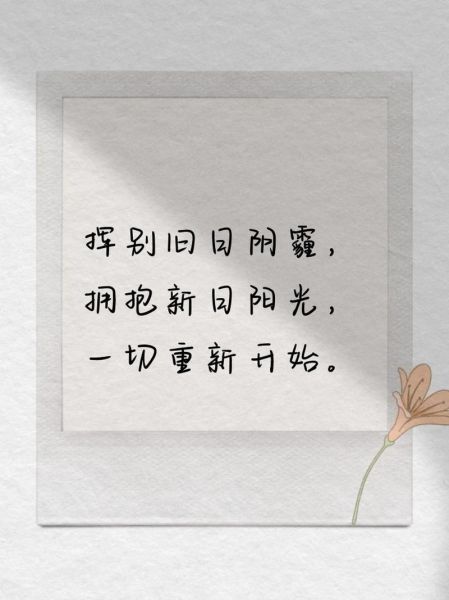 挥别旧日阴霾，
拥抱新日阳光，
一切重新开始。